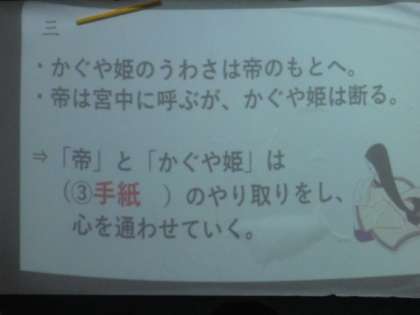 三
・かぐや姫のうわさは帝のもとへ。
・帝は宮中に呼ぶが、かぐや姫は断る。
⇒「帝」と「かぐや姫」は
（③手紙　）のやり取りをし、
心を通わせていく。